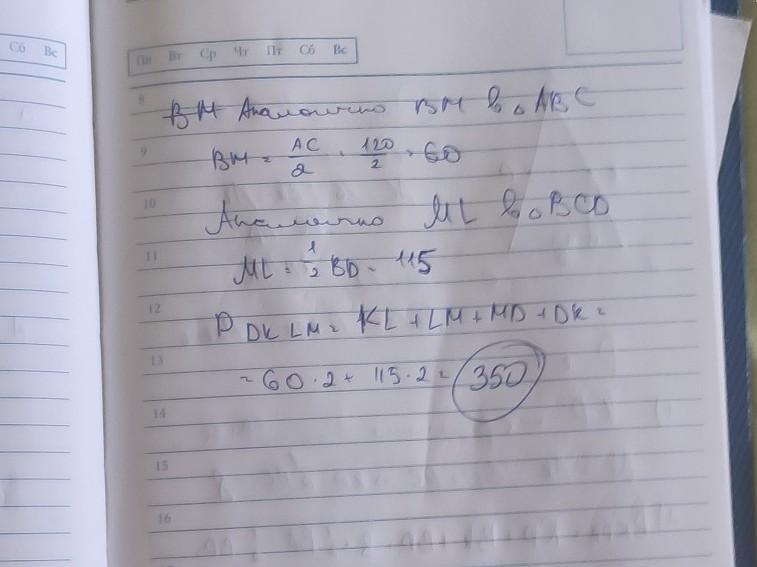 Сб Вс
Пн Вт Ср Чт Пт Сб Вс
8
ВМ Аналогично ВМ в △ABC
9
ВМ = AC/2 = 120/2 = 60
10
Аналогично ML в △BCD
11
ML = 1/2 BD = 115
12
P DKLM = KL + LM + MD + DK =
13
= 60 · 2 + 115 · 2 = 350
14
15
16